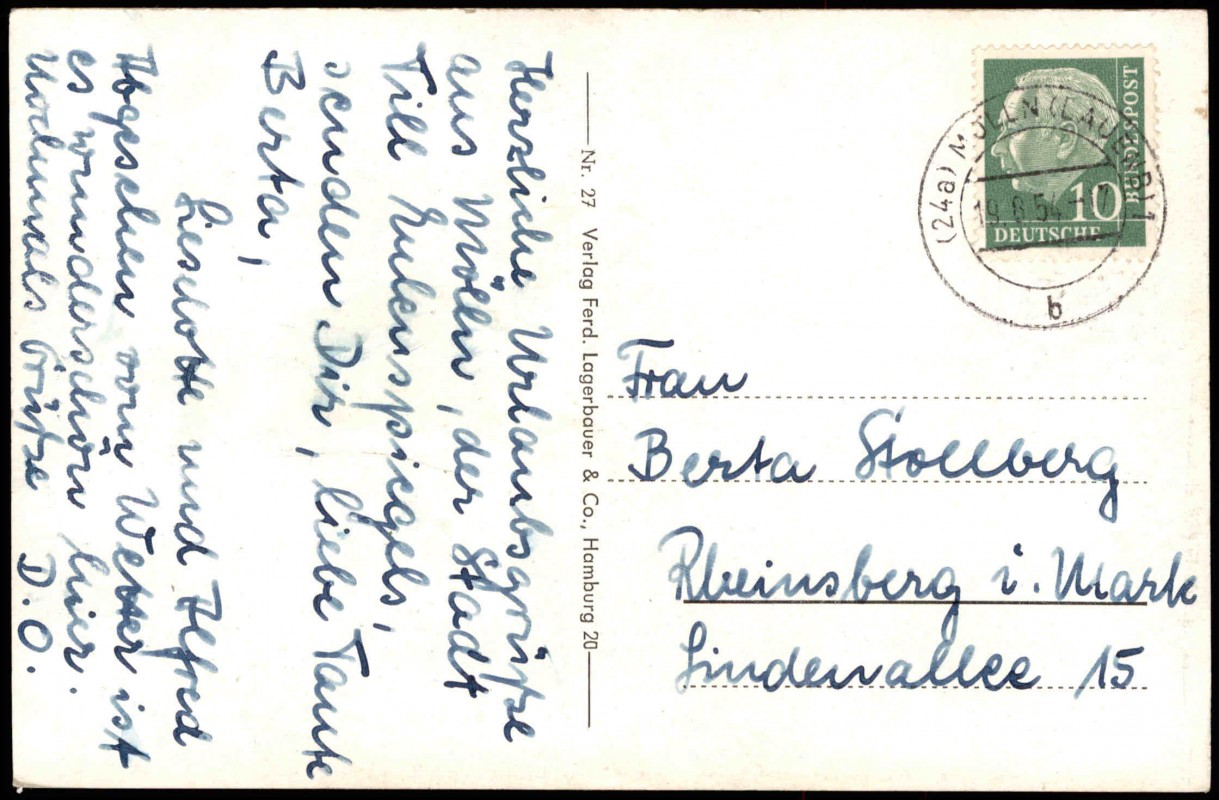 Herzliche Urlaubsgrüße
aus Mölln, der Stadt
Till Eulenspiegels,
senden Dir, liebe Tante
Berta,
Lieselotte und Alfred
Abgesehen vom Wetter ist
es wunderschön hier.
Nochmals Grüße D.O.
Nr. 27 Verlag Ferd. Lagerbauer & Co., Hamburg 20
(24a) MÖLLN (LAUENB) 1
19.6.54
b
BUNDESPOST
10
DEUTSCHE
Frau
Berta Stollberg
Rheinsberg i. Mark
Lindenallee 15